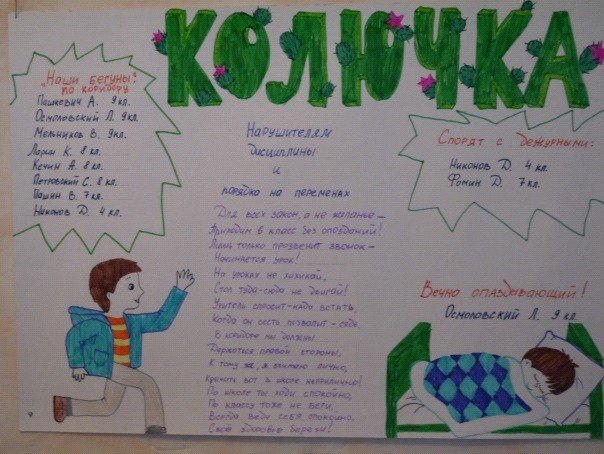 КОЛЮЧКА
"Наши бегуны"
по коридору
Пашкевич А. 9 кл.
Осмоловский Л. 9 кл.
Мельников В. 9 кл.
Ларин К. 8 кл.
Кечин А. 8 кл.
Петровский С. 8 кл.
Пашин В. 7 кл.
Никонов Д. 4 кл.
Нарушителям
дисциплины
и
порядка на переменах
Для всех закон, а не желанье –
Приходим в класс без опозданий!
Лишь только прозвенит звонок –
Начинается урок!
На уроках не хихикай,
Стол туда-сюда не двигай!
Учитель спросит – надо встать,
Когда он сесть позволит – сядь.
В коридоре мы должны
Держаться правой стороны,
К тому же, я считаю лично,
Кричать вот в школе неприлично!
По школе ты ходи спокойно,
По классу тоже не беги,
Всегда веди себя спокойно,
Своё здоровье береги!
Спорят с дежурными:
Никонов Д. 4 кл.
Фомин Д. 7 кл.
Вечно опаздавающий!
Осмоловский Л. 9 кл.